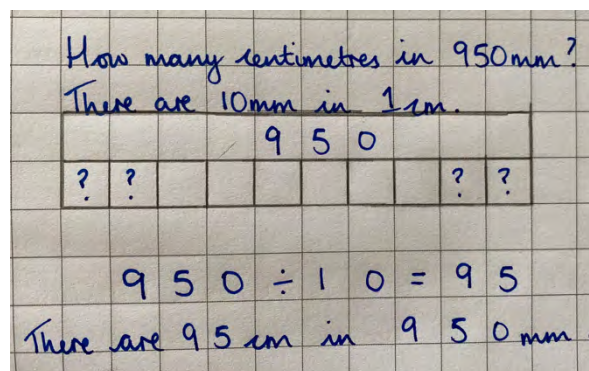 How many centimetres in 950mm?
There are 10mm in 1cm.
9 5 0
? ? ? ?
9 5 0 ÷ 1 0 = 9 5
There are 9 5 cm in 9 5 0 mm